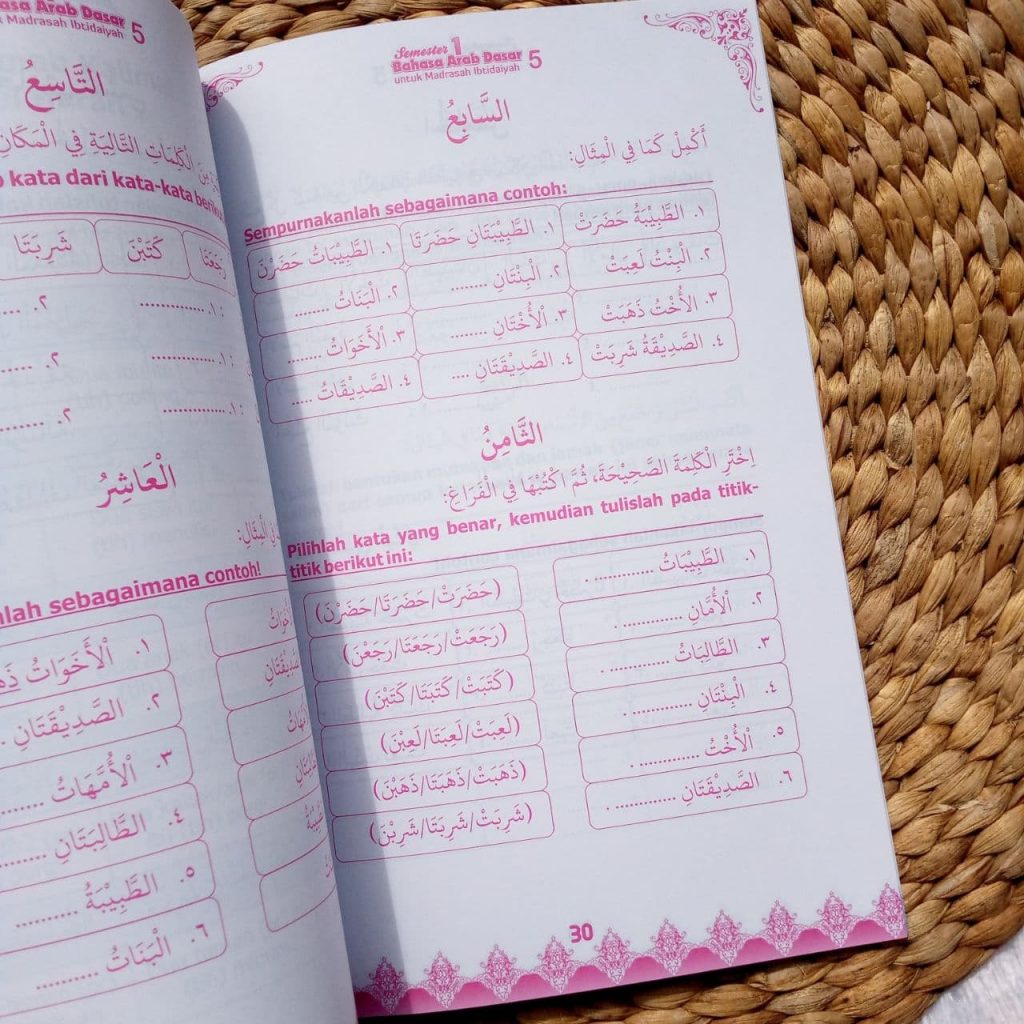 asa Arab Dasar
uk Madrasah Ibtidaiyah 5
التَّاسِعُ
الْكَلِمَاتِ التَّالِيَةِ فِي الْمَكَانِ
kata dari kata-kata beriku
رَجَعَتَا كَتَبْنَ شَرِبَتَا
١. ............ ٢.
١. ............ ٢.
١. ............ ٢.
الْعَاشِرُ
فِي الْمِثَالِ:
lah sebagaimana contoh!
١. الْأَخَوَاتُ
٢. الصَّدِيْقَتَانِ
٣. الْأُمَّهَاتُ .........
٤. الطَّالِبَتَانِ .........
٥. الطَّبِيْبَةُ ..........
٦. الْبَنَاتُ ..........
Semester 1
Bahasa Arab Dasar
untuk Madrasah Ibtidaiyah 5
السَّابِعُ
أَكْمِلْ كَمَا فِي الْمِثَالِ:
Sempurnakanlah sebagaimana contoh:
١. الطَّبِيْبَةُ حَضَرَتْ ١. الطَّبِيْبَتَانِ حَضَرَتَا ١. الطَّبِيْبَاتُ حَضَرْنَ
٢. الْبِنْتُ لَعِبَتْ ٢. الْبِنْتَانِ ........ ٢. الْبَنَاتُ ........
٣. الأُخْتُ ذَهَبَتْ ٣. الْأُخْتَانِ ........ ٣. الْأَخَوَاتُ ........
٤. الصَّدِيْقَةُ شَرِبَتْ ٤. الصَّدِيْقَتَانِ .... ٤. الصَّدِيْقَاتُ .....
الثَّامِنُ
اِخْتَرِ الْكَلِمَةَ الصَّحِيْحَةَ، ثُمَّ اكْتُبْهَا فِي الْفَرَاغِ:
Pilihlah kata yang benar, kemudian tulislah pada titik-
titik berikut ini:
١. الطَّبِيْبَاتُ ............ . (حَضَرَتْ/حَضَرَتَا/حَضَرْنَ)
٢. الْأُمَّانِ ............ (رَجَعَتْ/رَجَعَتَا/رَجَعْنَ)
٣. الطَّالِبَاتُ ............ . (كَتَبَتْ/كَتَبَتَا/كَتَبْنَ)
٤. الْبِنْتَانِ ............ . (لَعِبَتْ/لَعِبَتَا/لَعِبْنَ)
٥. الْأُخْتُ ............ . (ذَهَبَتْ/ذَهَبَتَا/ذَهَبْنَ)
٦. الصَّدِيْقَتَانِ ............ . (شَرِبَتْ/شَرِبَتَا/شَرِبْنَ)
30